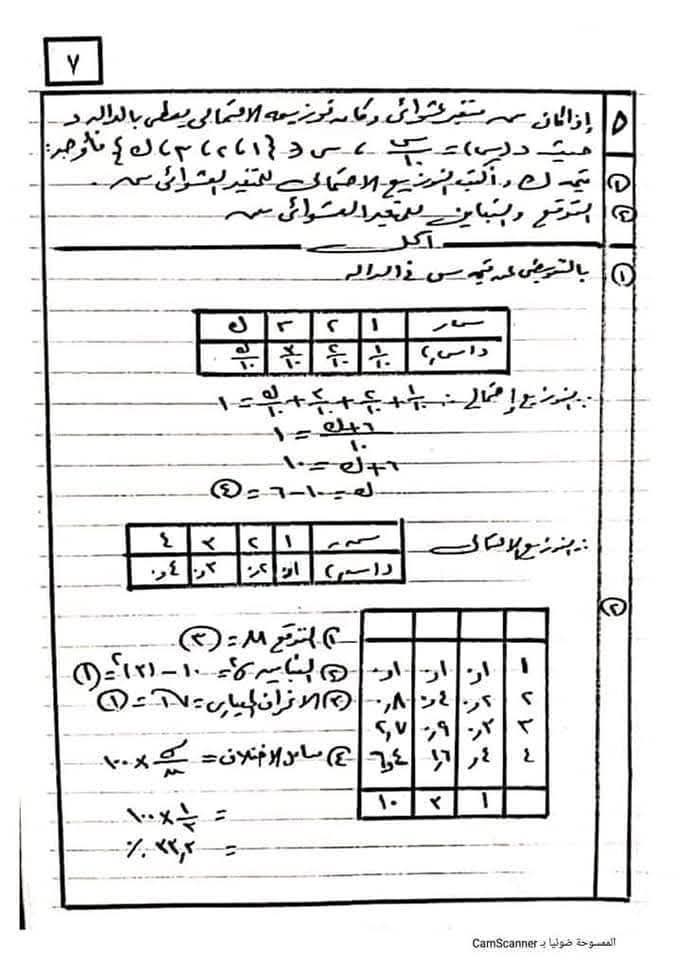 ٧
٥ إذا كان س متغير عشوائى وكان توزيعه الاحتمالى يعطى بالدالة د
حيث د(س) = س/١٠ ، س ∈ {١، ٢، ٣، ك} فأوجد:
① قيمة ك وأكتب التوزيع الاحتمالى للمتغير العشوائى س.
② التوقع والتباين للمتغير العشوائى س
الحل
① بالتعويض عن قيمة س فى الدالة
س ر ١ ٢ ٣ ك
د(س ر) ١/١٠ ٢/١٠ ٣/١٠ ك/١٠
∵ التوزيع إحتمالى ∴ ١/١٠ + ٢/١٠ + ٣/١٠ + ك/١٠ = ١
٦+ك/١٠ = ١
٦+ك = ١٠
ك = ١٠-٦ = ④
∴ التوزيع الاحتمالى
س ر ١ ٢ ٣ ٤
د(س ر) ٠,١ ٠,٢ ٠,٣ ٠,٤
②
١ ٠,١ ٠,١ ٠,١
٢ ٠,٢ ٠,٤ ٠,٨
٣ ٠,٣ ٠,٩ ٢,٧
٤ ٠,٤ ١,٦ ٦,٤
١ ٣ ١٠
١) التوقع M = ③
٢) التباين σ² = ١٠ - (٣)² = ①
٣) الانحراف المعيارى = √١ = ①
٤) معامل الاختلاف = σ/μ × ١٠٠
= ١/٣ × ١٠٠
= ٣٣,٣ ٪
الممسوحة ضوئيا بـ CamScanner